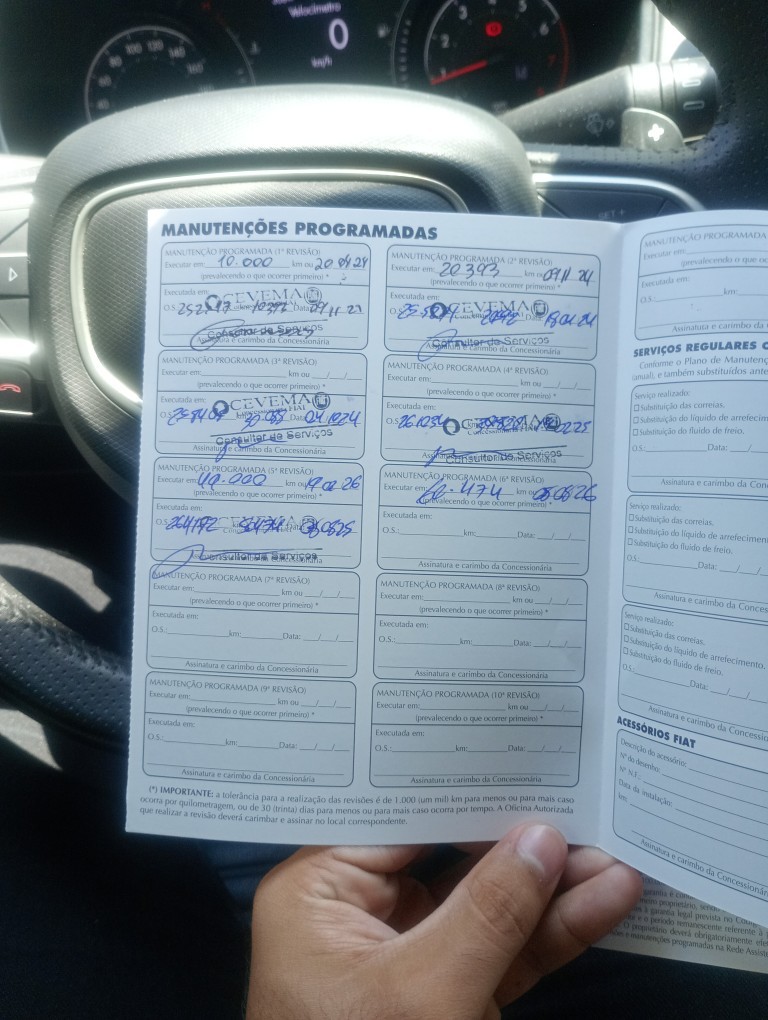 Velocímetro
0
km/h
80
100
120
140
160
3
4
6
7
MANUTENÇÕES PROGRAMADAS
MANUTENÇÃO PROGRAMADA (1ª REVISÃO)
Executar em: 10.000 km ou 20 04 24
(prevalecendo o que ocorrer primeiro) *
Executada em:
O.S.: CEVEMA Data:
Consultor de Serviços
Assinatura e carimbo da Concessionária
MANUTENÇÃO PROGRAMADA (2ª REVISÃO)
Executar em: 20.393 km ou 09 11 24
(prevalecendo o que ocorrer primeiro) *
Executada em:
O.S.: CEVEMA
Consultor de Serviços
Assinatura e carimbo da Concessionária
MANUTENÇÃO PROGRAMADA (3ª REVISÃO)
Executar em: km ou __/__/__
(prevalecendo o que ocorrer primeiro) *
Executada em:
O.S.: CEVEMA Data: 04 10 24
Consultor de Serviços
Assinatura e carimbo da Concessionária
MANUTENÇÃO PROGRAMADA (4ª REVISÃO)
Executar em:
km ou __/__/__
(prevalecendo o que ocorrer primeiro) *
Executada em:
O.S.: CEVEMA
Consultor de Serviços
MANUTENÇÃO PROGRAMADA (5ª REVISÃO)
Executar em: 49.000 km ou 19 02 26
(prevalecendo o que ocorrer primeiro) *
Executada em:
O.S.: 264172 50474
Consultor de Serviços
MANUTENÇÃO PROGRAMADA (6ª REVISÃO)
Executar em: km ou 05 08 26
(prevalecendo o que ocorrer primeiro) *
Executada em:
O.S.: km: Data: __/__/__
Assinatura e carimbo da Concessionária
MANUTENÇÃO PROGRAMADA (7ª REVISÃO)
Executar em: km ou __/__/__
(prevalecendo o que ocorrer primeiro) *
Executada em:
O.S.: km: Data: __/__/__
Assinatura e carimbo da Concessionária
MANUTENÇÃO PROGRAMADA (8ª REVISÃO)
Executar em: km ou __/__/__
(prevalecendo o que ocorrer primeiro) *
Executada em:
O.S.: km: Data: __/__/__
Assinatura e carimbo da Concessionária
MANUTENÇÃO PROGRAMADA (9ª REVISÃO)
Executar em: km ou __/__/__
(prevalecendo o que ocorrer primeiro) *
Executada em:
O.S.: km: Data: __/__/__
Assinatura e carimbo da Concessionária
MANUTENÇÃO PROGRAMADA (10ª REVISÃO)
Executar em: km ou __/__/__
(prevalecendo o que ocorrer primeiro) *
Executada em:
O.S.: km: Data: __/__/__
Assinatura e carimbo da Concessionária
(*) IMPORTANTE: a tolerância para a realização das revisões é de 1.000 (um mil) km para menos ou para mais caso
ocorra por quilometragem, ou de 30 (trinta) dias para menos ou para mais caso ocorra por tempo. A Oficina Autorizada
que realizar a revisão deverá carimbar e assinar no local correspondente.
MANUTENÇÃO PROGRAMADA
Executar em:
Executada em:
O.S.:
Assinatura e carimbo da
SERVIÇOS REGULARES
Conforme o Plano de
anual, e também substituídos
Serviço realizado:
Substituição das correias.
Substituição do líquido de
Substituição do fluido de freio.
O.S.: Data: __/
Assinatura e carimbo da
Serviço realizado:
Substituição das correias.
Substituição do líquido de
Substituição do fluido de freio.
O.S.: Data:
Assinatura e carimbo da
Serviço realizado:
Substituição das correias.
Substituição do líquido de arrefecimento.
Substituição do fluido de freio.
O.S.: Data:
Assinatura e carimbo da
ACESSÓRIOS FIAT
Descrição do acessório:
Nº do desenho:
Nº N.F.:
Data da instalação:
km:
Assinatura e carimbo da